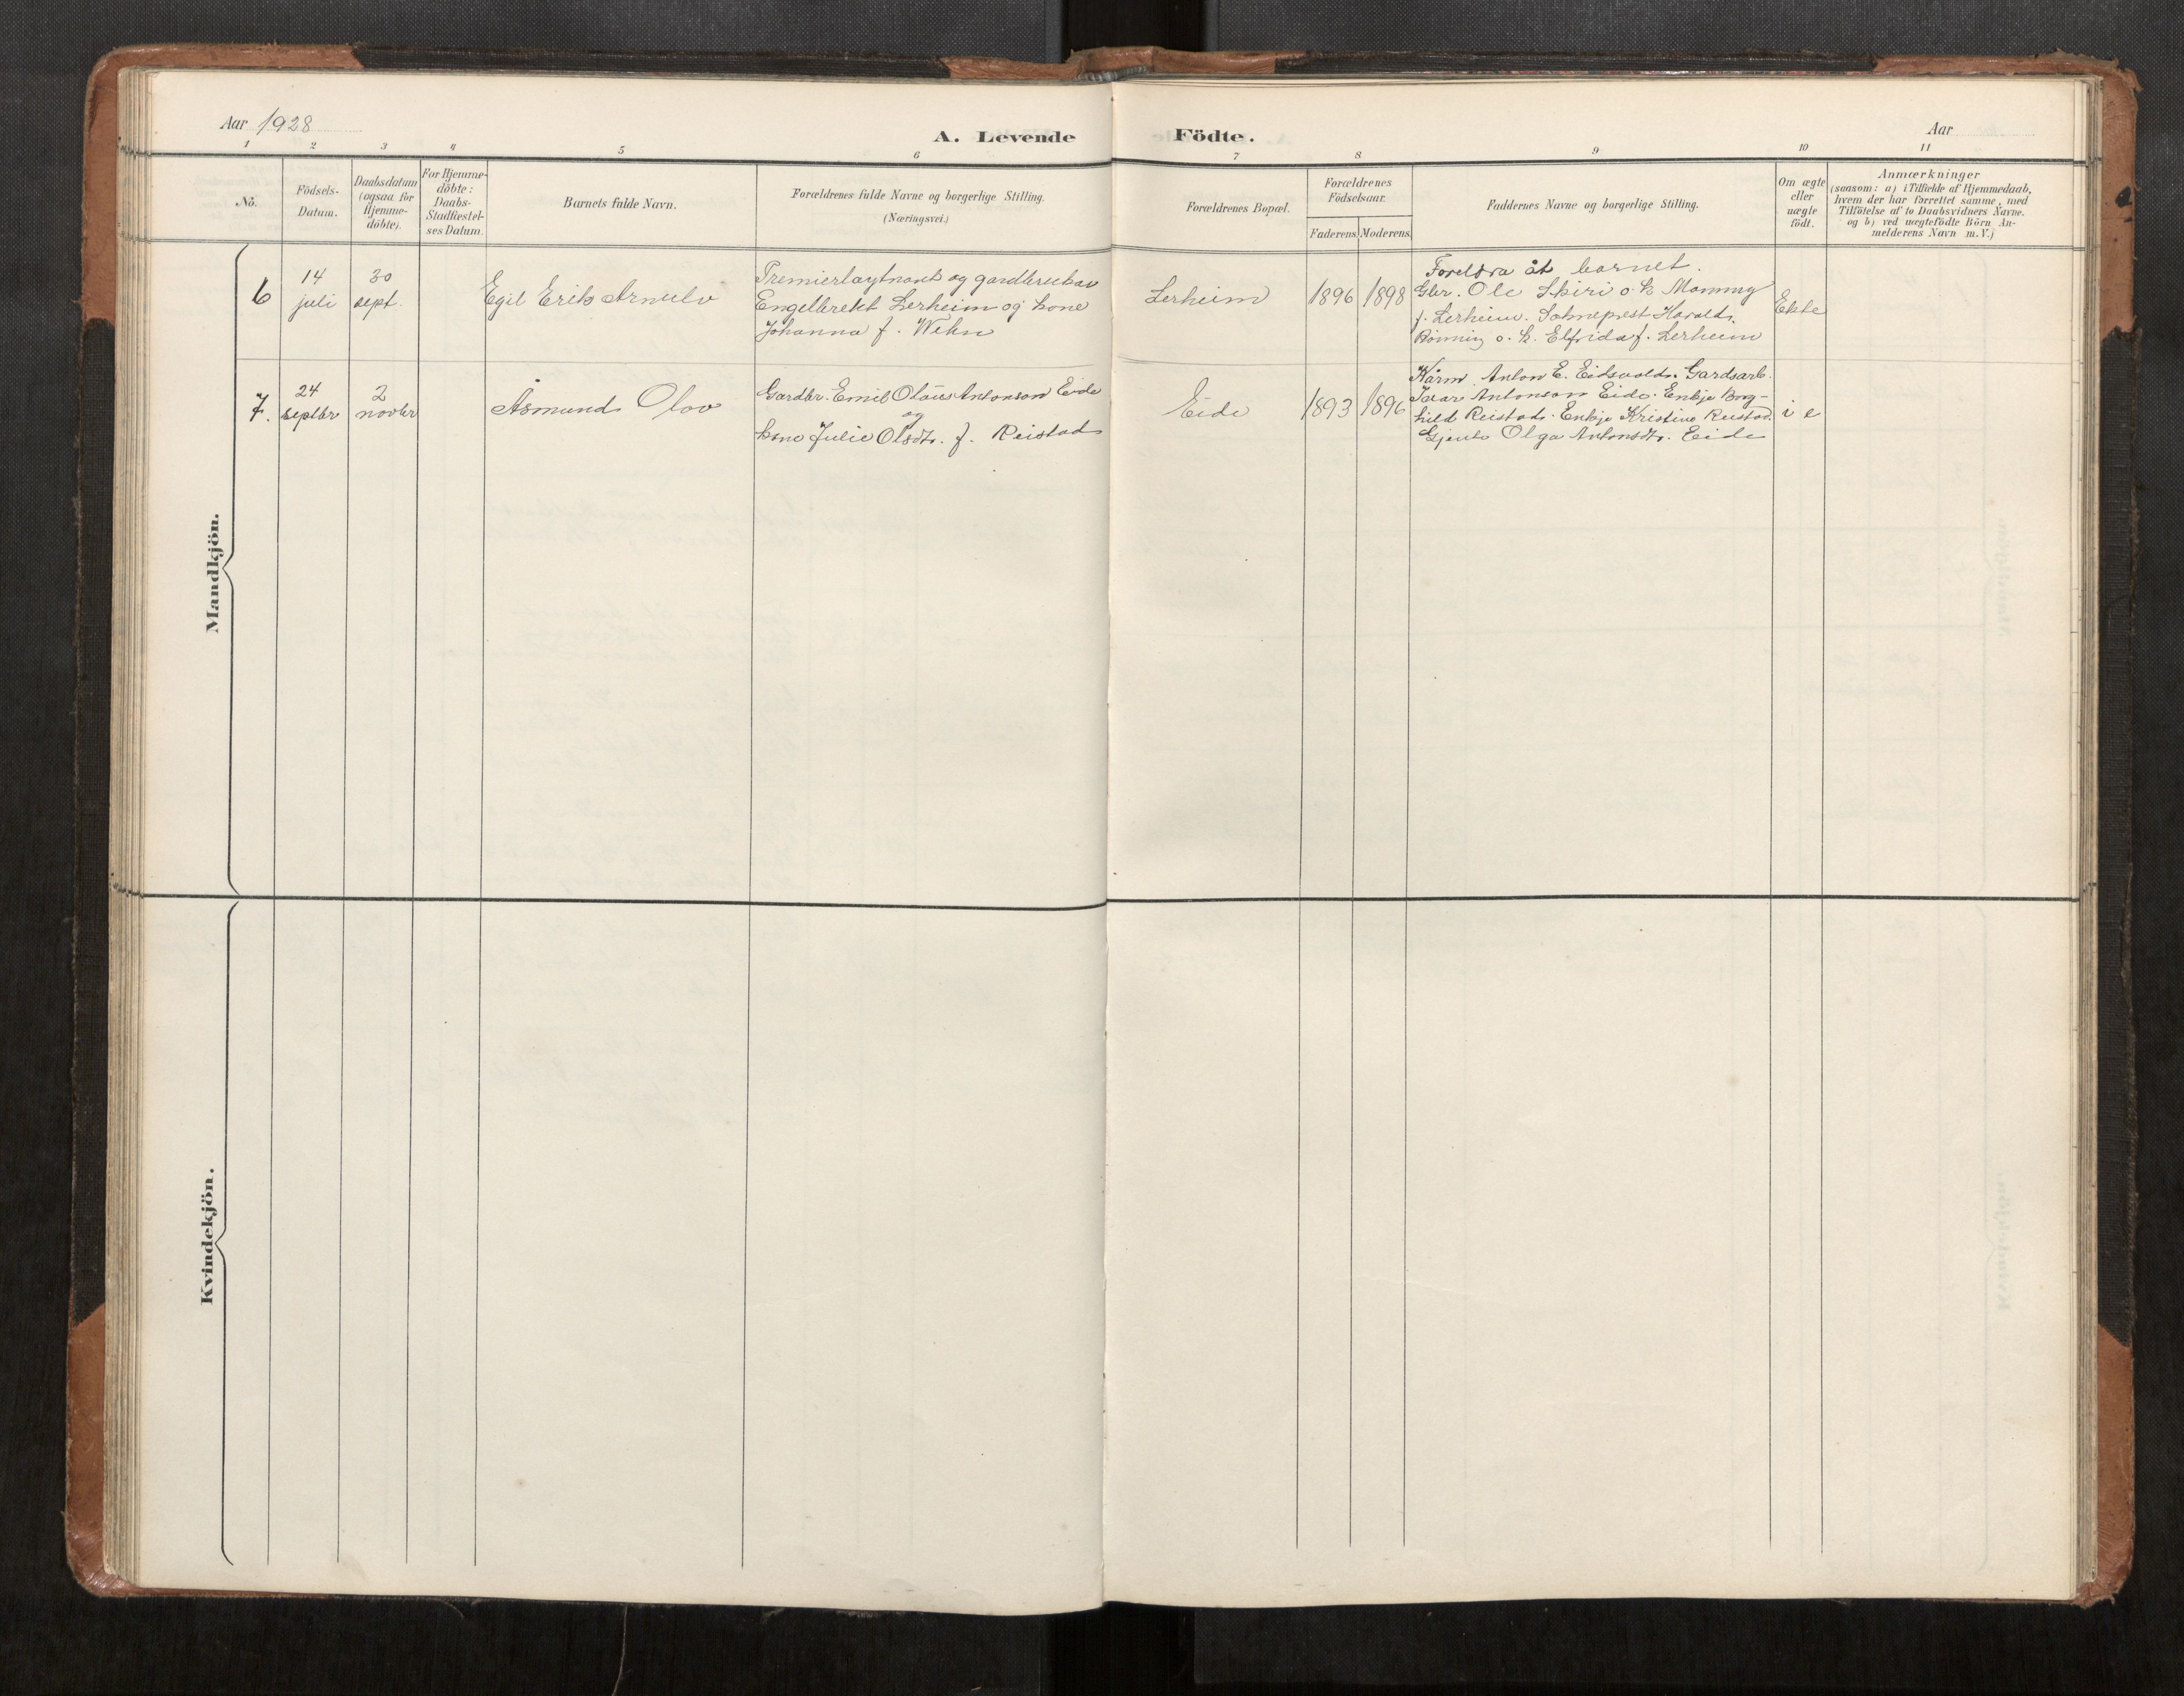 Aar 1928
A. Levende Födte.
Aar
1 2 3 4 5 6 7 8 9 10 11
No.
Födsels-
Datum.
Daabsdatum
(ogsaa for
Hjemme-
döbte).
For Hjemme-
döbte:
Daabs-
Stadfæstel-
ses Datum.
Barnets fulde Navn.
Forældrenes fulde Navne og borgerlige Stilling.
(Næringsvei.)
Forældrenes Bopæl.
Forældrenes
Födselsaar.
Faderens. Moderens.
Faddernes Navne og borgerlige Stilling.
Om ægte
eller
uægte
födt.
Anmærkninger
(saasom: a) i Tilfælde af Hjemmedaab,
hvem der har forrettet samme, med
Tilföielse af to Daabsvidners Navne.
og b) ved uægtefödte Börn An-
melderens Navn m. V.)
Mandkjön.
6
14
juli
30
sept.
Egil Erik Arnulv
Premierløytnant og gardbrukar
Engelbrekt Lerheim og kone
Johanna f. Wehn
Lerheim
1896
1898
Foreldra åt barnet.
Gbr. Ole Skiri o. k.
f. Lerheim. Sokneprest Harald
Rönning o. k. Elfrida f. Lerheim
Ekte
7.
24
septbr
2
novbr
Åsmund Olov
Gardbr. Emil Olaus Antonson Eide
og
kone Julie Olsdtr. f. Reistad
Eide
1893
1896
Anton E. Eidsvold. Gardsarb.
Ivar Antonson Eide. Enkje Borg-
hild Reistad. Enkje Kristine Reistad.
Gjente Olga Antonsdtr. Eide
i e
Kvindekjön.